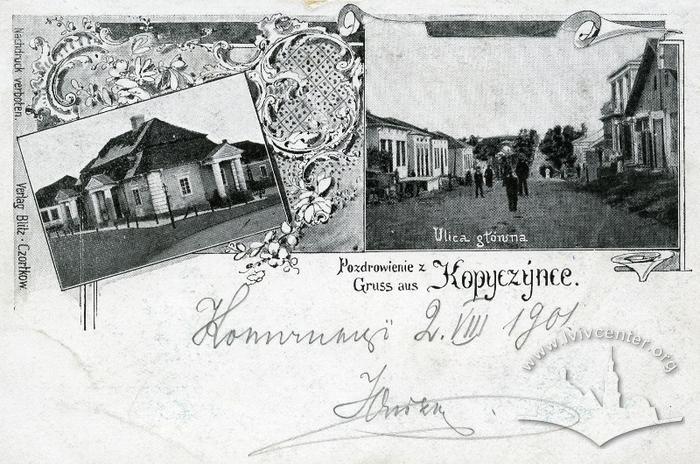 Nachdruck verboten.
Verlag Blitz - Czortków.
Ulica główna
Pozdrowienie z
Gruss aus
Kopyczyńce.
2. VIII 1901
www.lvivcenter.org